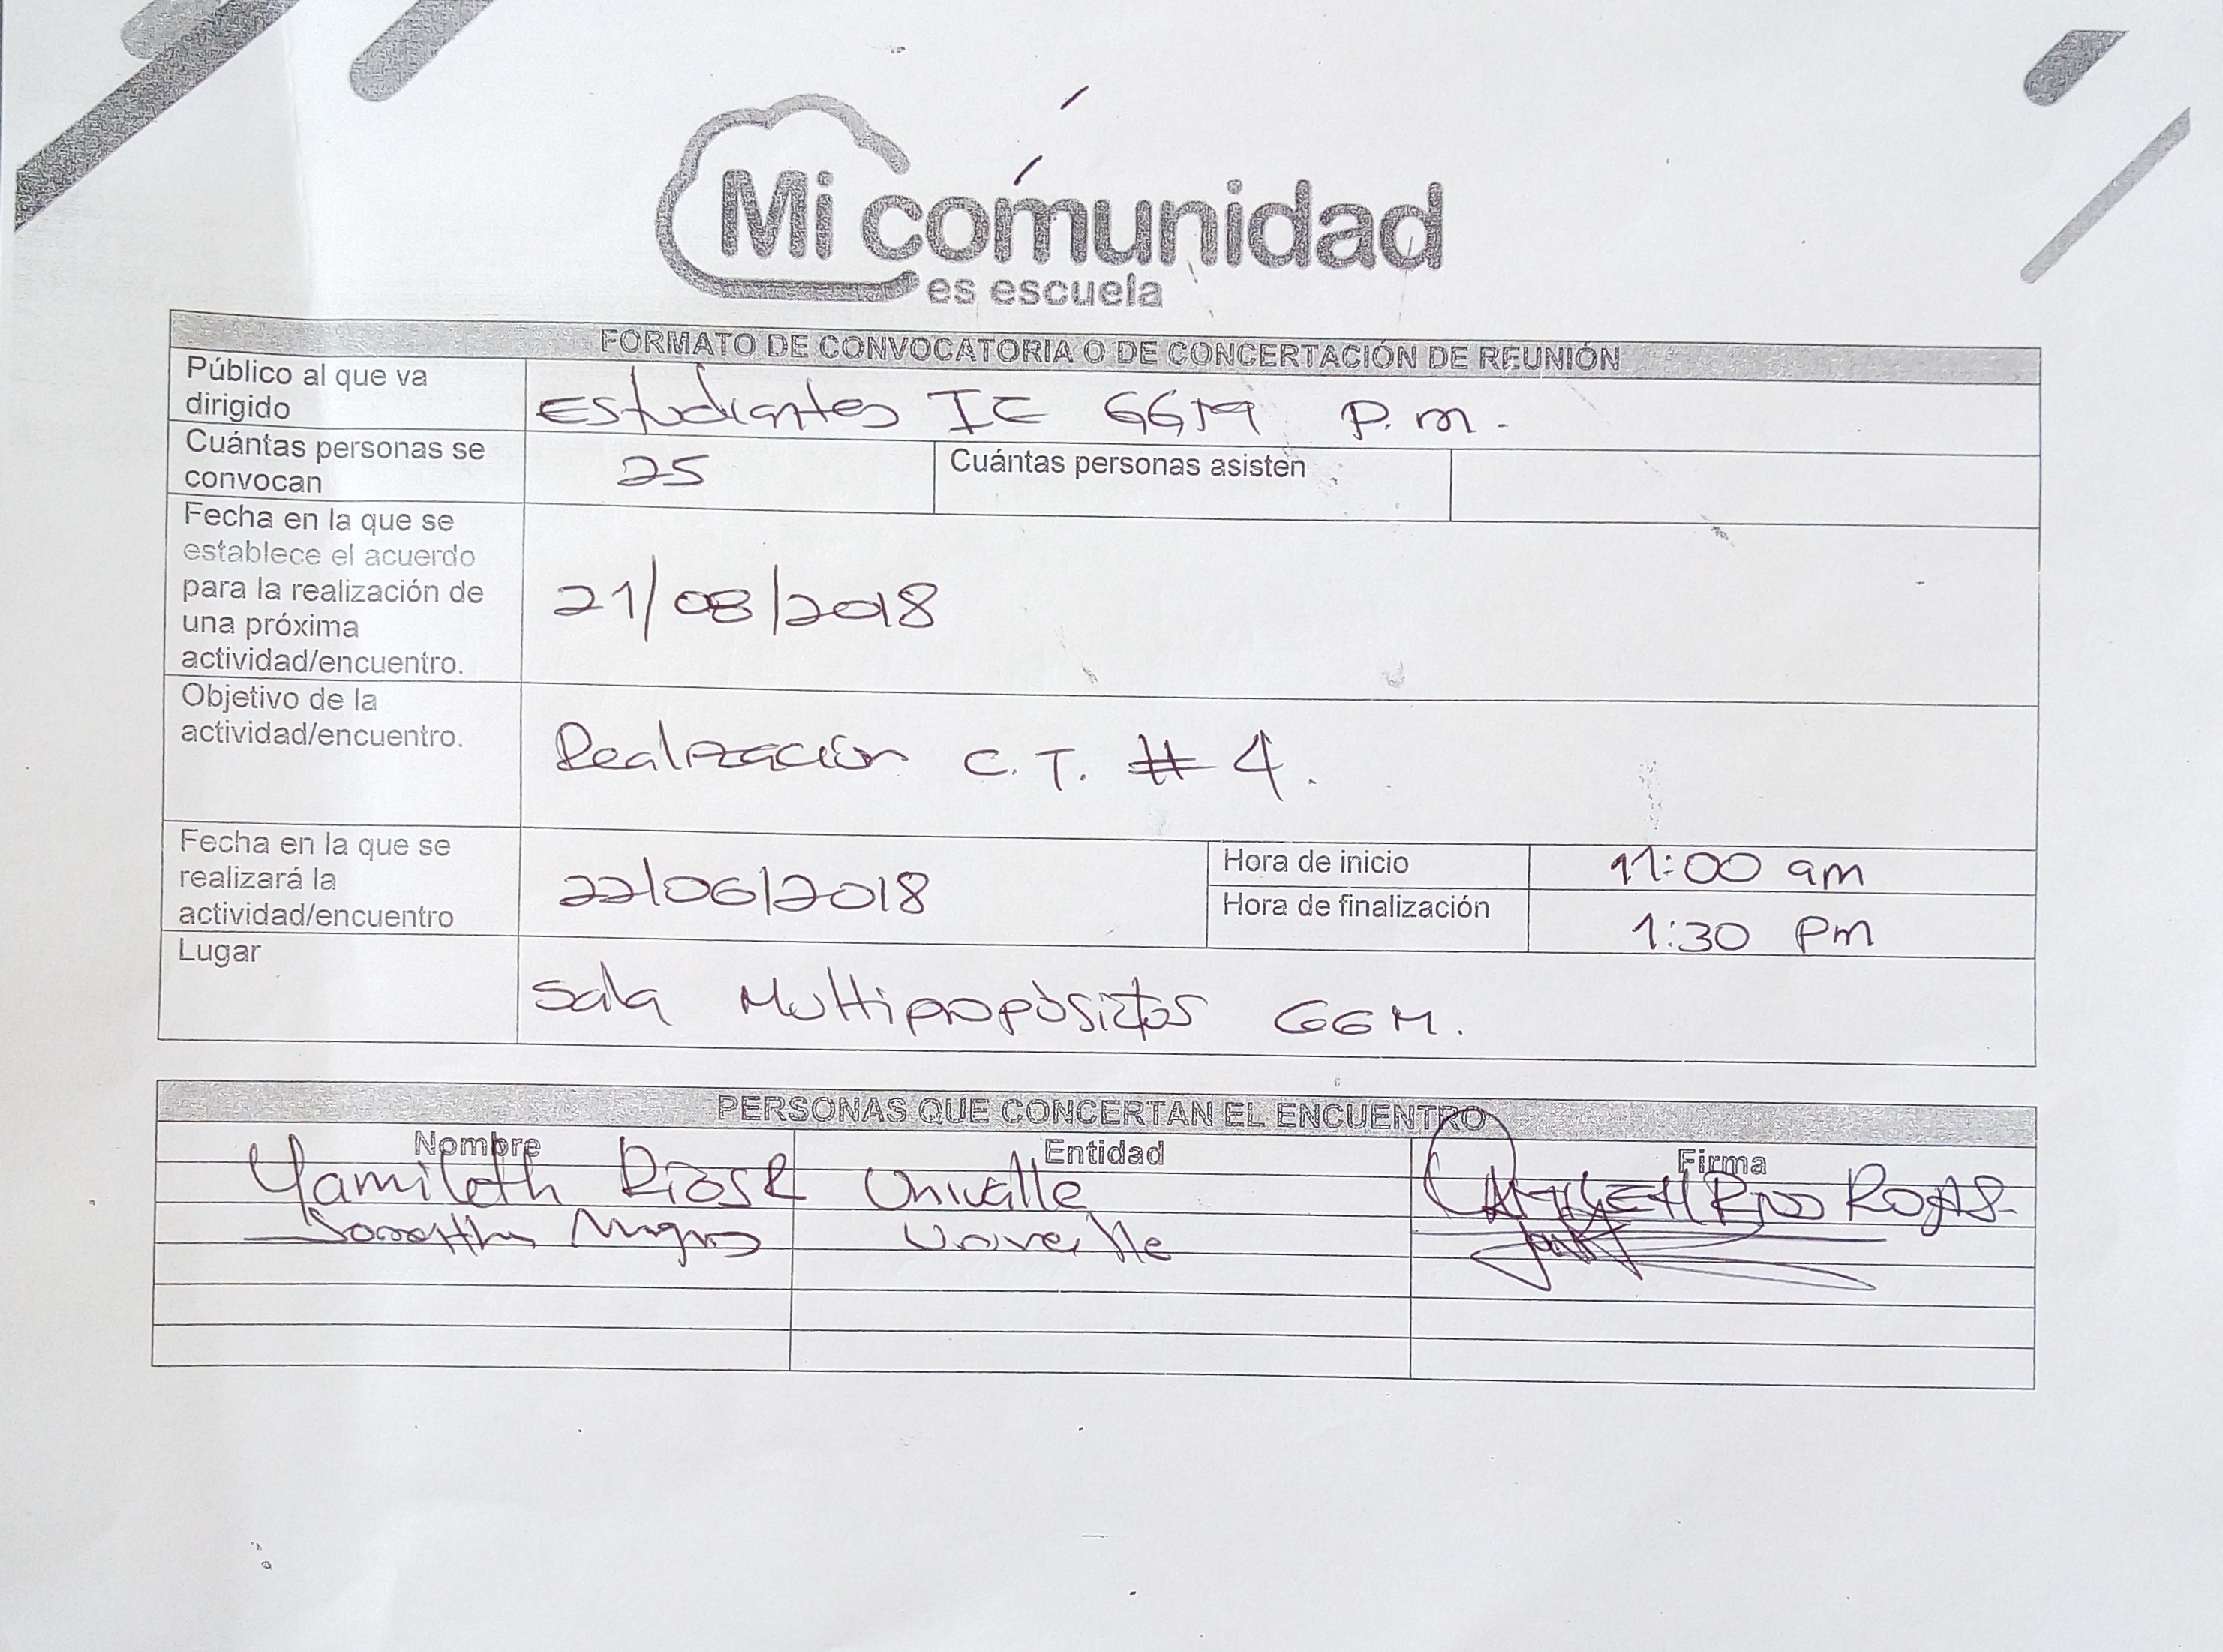 Mi comunidad
es escuela
FORMATO DE CONVOCATORIA O DE CONCERTACIÓN DE REUNIÓN
Público al que va
dirigido
Estudiantes IE GGM P.m.
Cuántas personas se
convocan
25
Cuántas personas asisten
Fecha en la que se
establece el acuerdo
para la realización de
una próxima
actividad/encuentro.
21/08/2018
Objetivo de la
actividad/encuentro.
Realización C.T. # 4.
Fecha en la que se
realizará la
actividad/encuentro
22/06/2018
Hora de inicio
11:00 am
Hora de finalización
1:30 Pm
Lugar
Sala Multipropósitos GGM.
PERSONAS QUE CONCERTAN EL ENCUENTRO
Nombre Entidad Firma
Yamileth Ríos R Univalle Rios ROJAS
Univalle